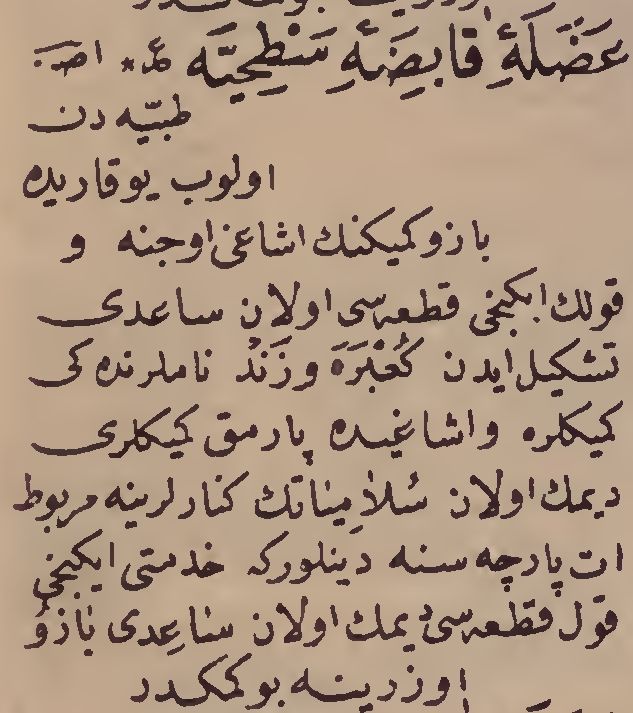 عَضَلَهٔ قَابِضَهٔ سَطْحِيَّه ع٭ اصـ
طبيّه دن
اولوب يوقاريده
بازو كميكنك اشاغى اوجنه و
قولك ايكنجى قطعه سى اولان ساعدى
تشكيل ايدن كُعْبُرَه وزَنْد ناملرنده كى
كميكلره واشاغيده پارمق كميكلرى
ديمك اولان سُلاَمِيَاتك كنارلرينه مربوط
ات پارچه سنه دينلوركه خدمتى ايكنجى
قول قطعه سى ديمك اولان ساعِدى بازو
اوزرينه بوكمكدر